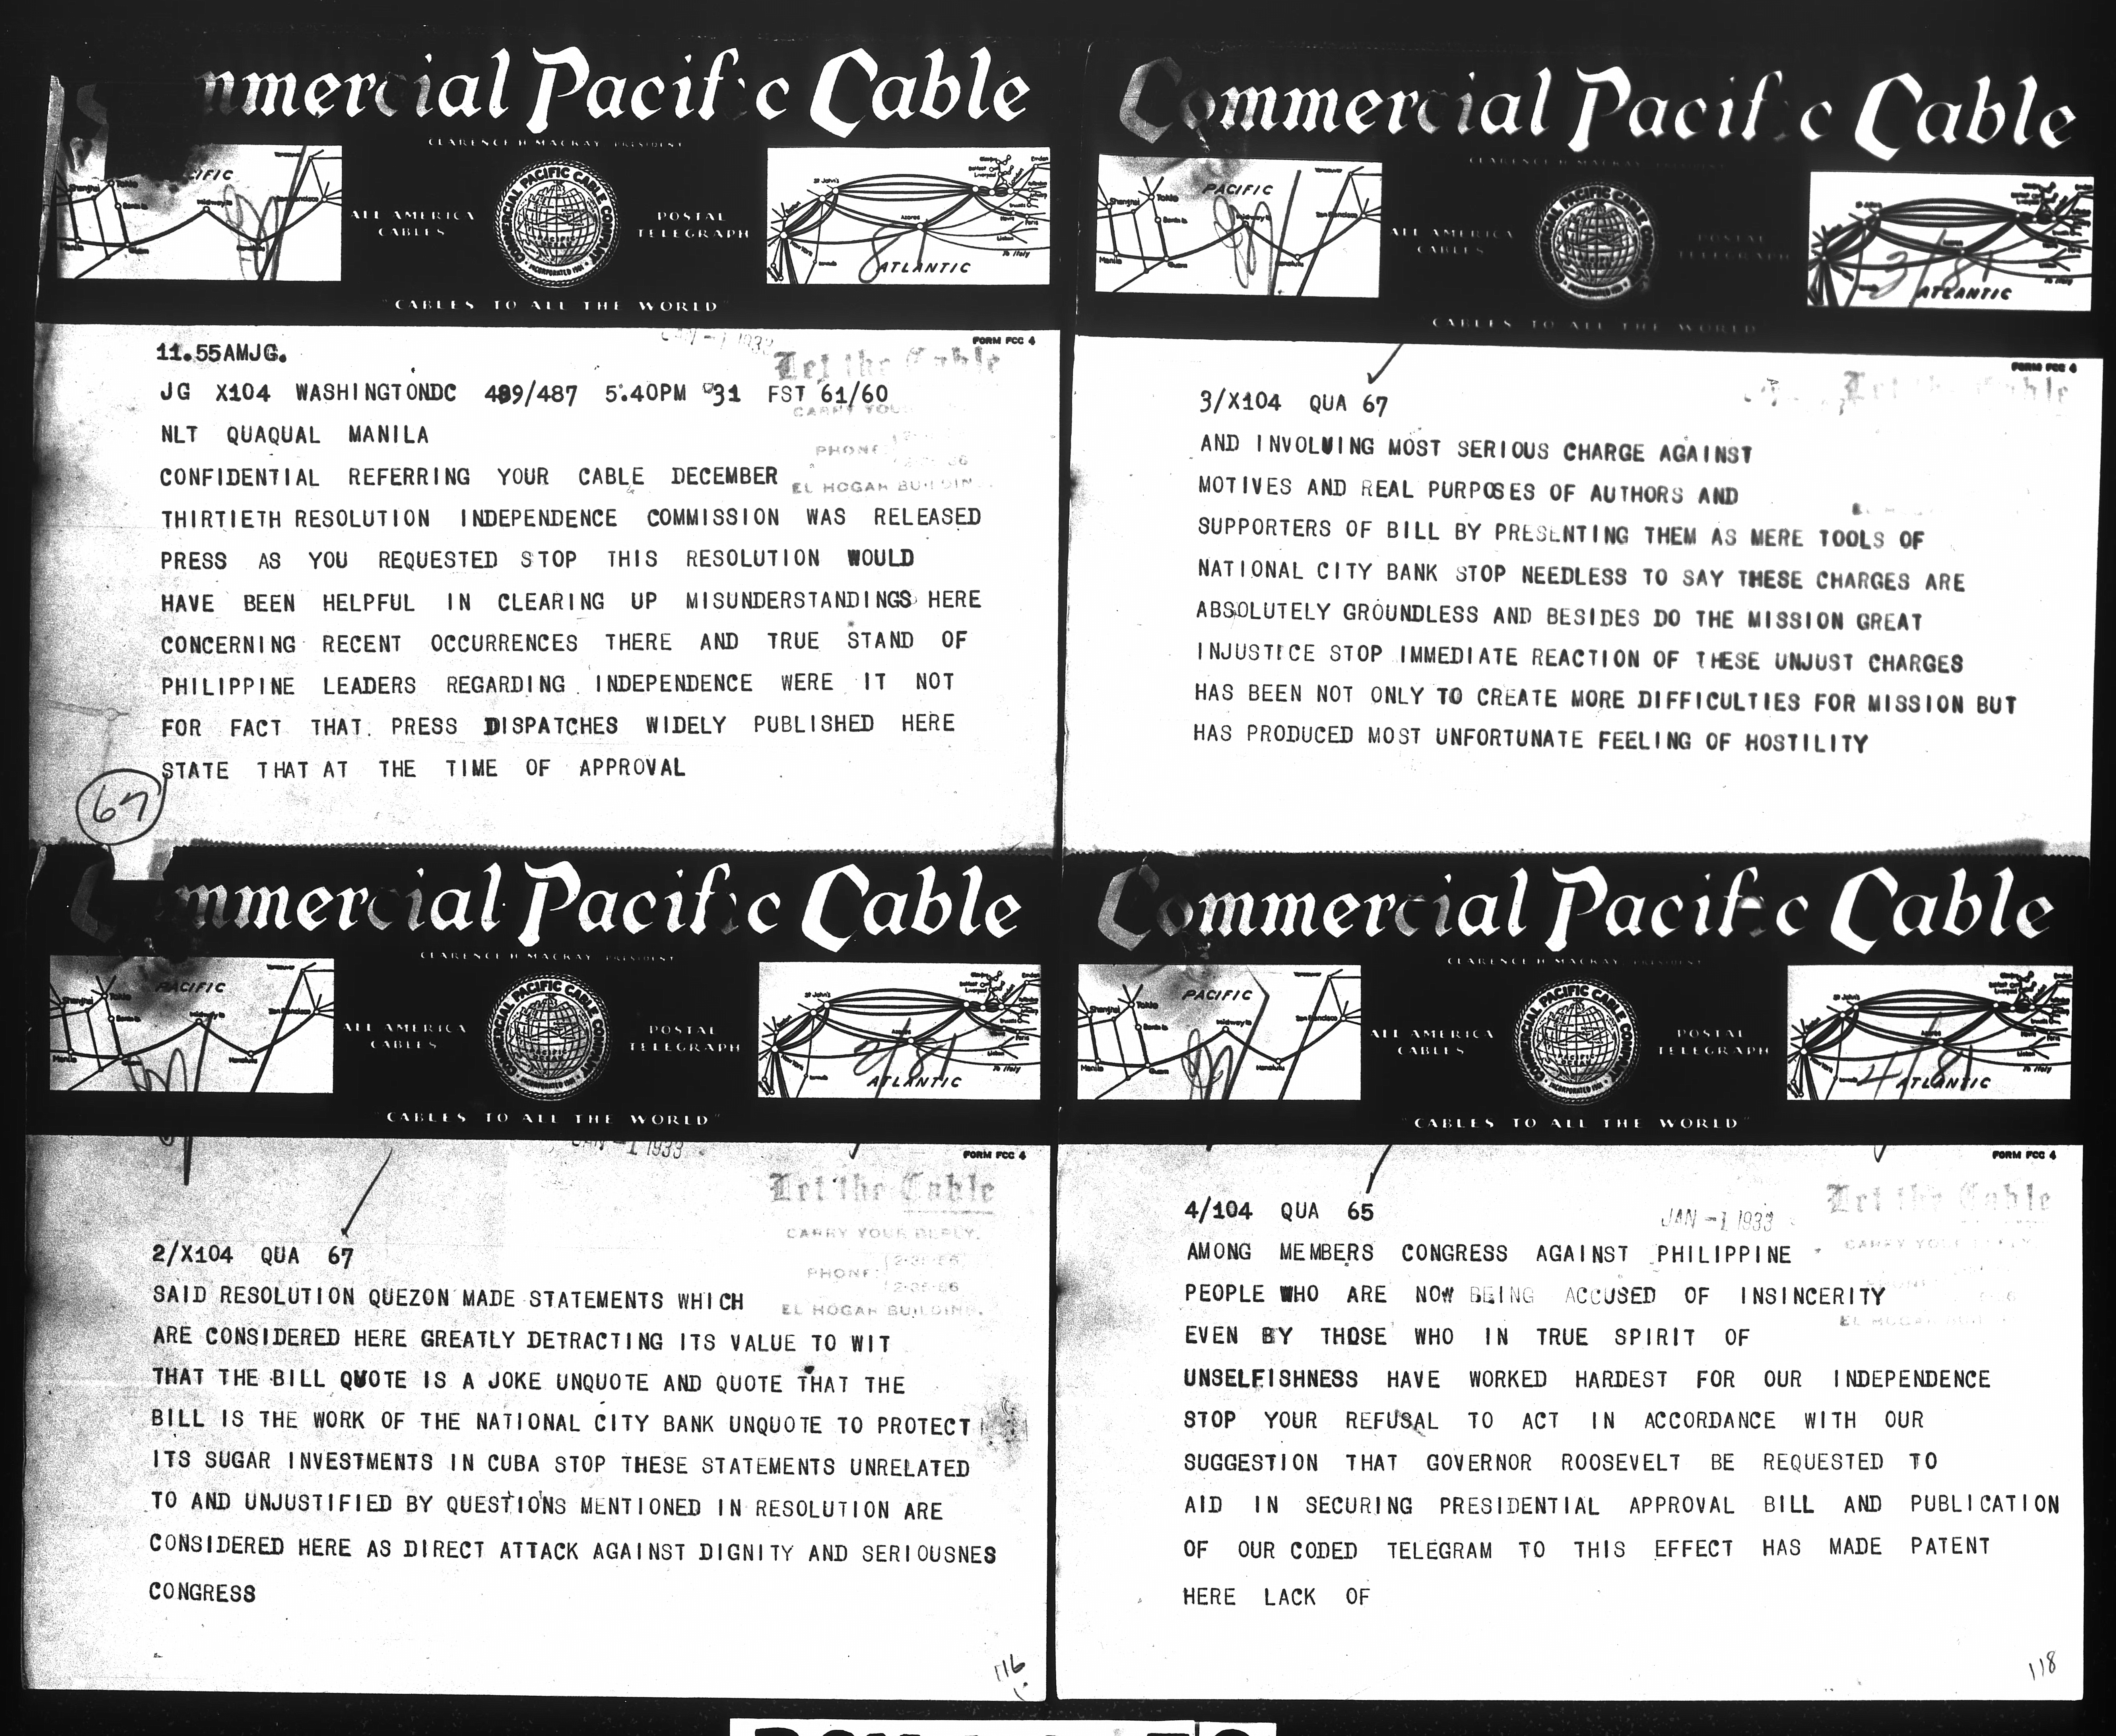 Commercial Pacific Cable
CLARENCE H. MACKAY PRESIDENT
ALL AMERICA
CABLES
COMMERCIAL PACIFIC CABLE COMPANY
INCORPORATED 1901
POSTAL
TELEGRAPH
ATLANTIC
"CABLES TO ALL THE WORLD"
FORM FCC 4
Let the Cable
11.55AMJG.
JG X104 WASHINGTONDC 489/487 5.40PM 31 FST 61/60
NLT QUAQUAL MANILA
CONFIDENTIAL REFERRING YOUR CABLE DECEMBER
EL HOGAR BUILDING
THIRTIETH RESOLUTION INDEPENDENCE COMMISSION WAS RELEASED
PRESS AS YOU REQUESTED STOP THIS RESOLUTION WOULD
HAVE BEEN HELPFUL IN CLEARING UP MISUNDERSTANDINGS HERE
CONCERNING RECENT OCCURRENCES THERE AND TRUE STAND OF
PHILIPPINE LEADERS REGARDING INDEPENDENCE WERE IT NOT
FOR FACT THAT PRESS DISPATCHES WIDELY PUBLISHED HERE
STATE THAT AT THE TIME OF APPROVAL
67
Commercial Pacific Cable
CLARENCE H. MACKAY PRESIDENT
PACIFIC
ALL AMERICA
CABLES
POSTAL
TELEGRAPH
2/81
ATLANTIC
"CABLES TO ALL THE WORLD"
JAN -1 1933
FORM FCC 4
Let the Cable
CARRY YOUR REPLY.
PHONE: 2-26-66
EL HOGAR BUILDING.
2/X104 QUA 67
SAID RESOLUTION QUEZON MADE STATEMENTS WHICH
ARE CONSIDERED HERE GREATLY DETRACTING ITS VALUE TO WIT
THAT THE BILL QUOTE IS A JOKE UNQUOTE AND QUOTE THAT THE
BILL IS THE WORK OF THE NATIONAL CITY BANK UNQUOTE TO PROTECT
ITS SUGAR INVESTMENTS IN CUBA STOP THESE STATEMENTS UNRELATED
TO AND UNJUSTIFIED BY QUESTIONS MENTIONED IN RESOLUTION ARE
CONSIDERED HERE AS DIRECT ATTACK AGAINST DIGNITY AND SERIOUSNES
CONGRESS
116
Commercial Pacific Cable
PACIFIC
ALL AMERICA
CABLES
POSTAL
TELEGRAPH
3/81
ATLANTIC
CABLES TO ALL THE WORLD
FORM FCC 4
Let the Cable
3/X104 QUA 67
AND INVOLVING MOST SERIOUS CHARGE AGAINST
MOTIVES AND REAL PURPOSES OF AUTHORS AND
SUPPORTERS OF BILL BY PRESENTING THEM AS MERE TOOLS OF
NATIONAL CITY BANK STOP NEEDLESS TO SAY THESE CHARGES ARE
ABSOLUTELY GROUNDLESS AND BESIDES DO THE MISSION GREAT
INJUSTICE STOP IMMEDIATE REACTION OF THESE UNJUST CHARGES
HAS BEEN NOT ONLY TO CREATE MORE DIFFICULTIES FOR MISSION BUT
HAS PRODUCED MOST UNFORTUNATE FEELING OF HOSTILITY
Commercial Pacific Cable
CLARENCE H. MACKAY PRESIDENT
PACIFIC
ALL AMERICA
CABLES
POSTAL
TELEGRAPH
4/81
ATLANTIC
"CABLES TO ALL THE WORLD"
FORM FCC 4
Let the Cable
JAN -1 1933
4/104 QUA 65
AMONG MEMBERS CONGRESS AGAINST PHILIPPINE
PEOPLE WHO ARE NOW BEING ACCUSED OF INSINCERITY
EVEN BY THOSE WHO IN TRUE SPIRIT OF
UNSELFISHNESS HAVE WORKED HARDEST FOR OUR INDEPENDENCE
STOP YOUR REFUSAL TO ACT IN ACCORDANCE WITH OUR
SUGGESTION THAT GOVERNOR ROOSEVELT BE REQUESTED TO
AID IN SECURING PRESIDENTIAL APPROVAL BILL AND PUBLICATION
OF OUR CODED TELEGRAM TO THIS EFFECT HAS MADE PATENT
HERE LACK OF
118